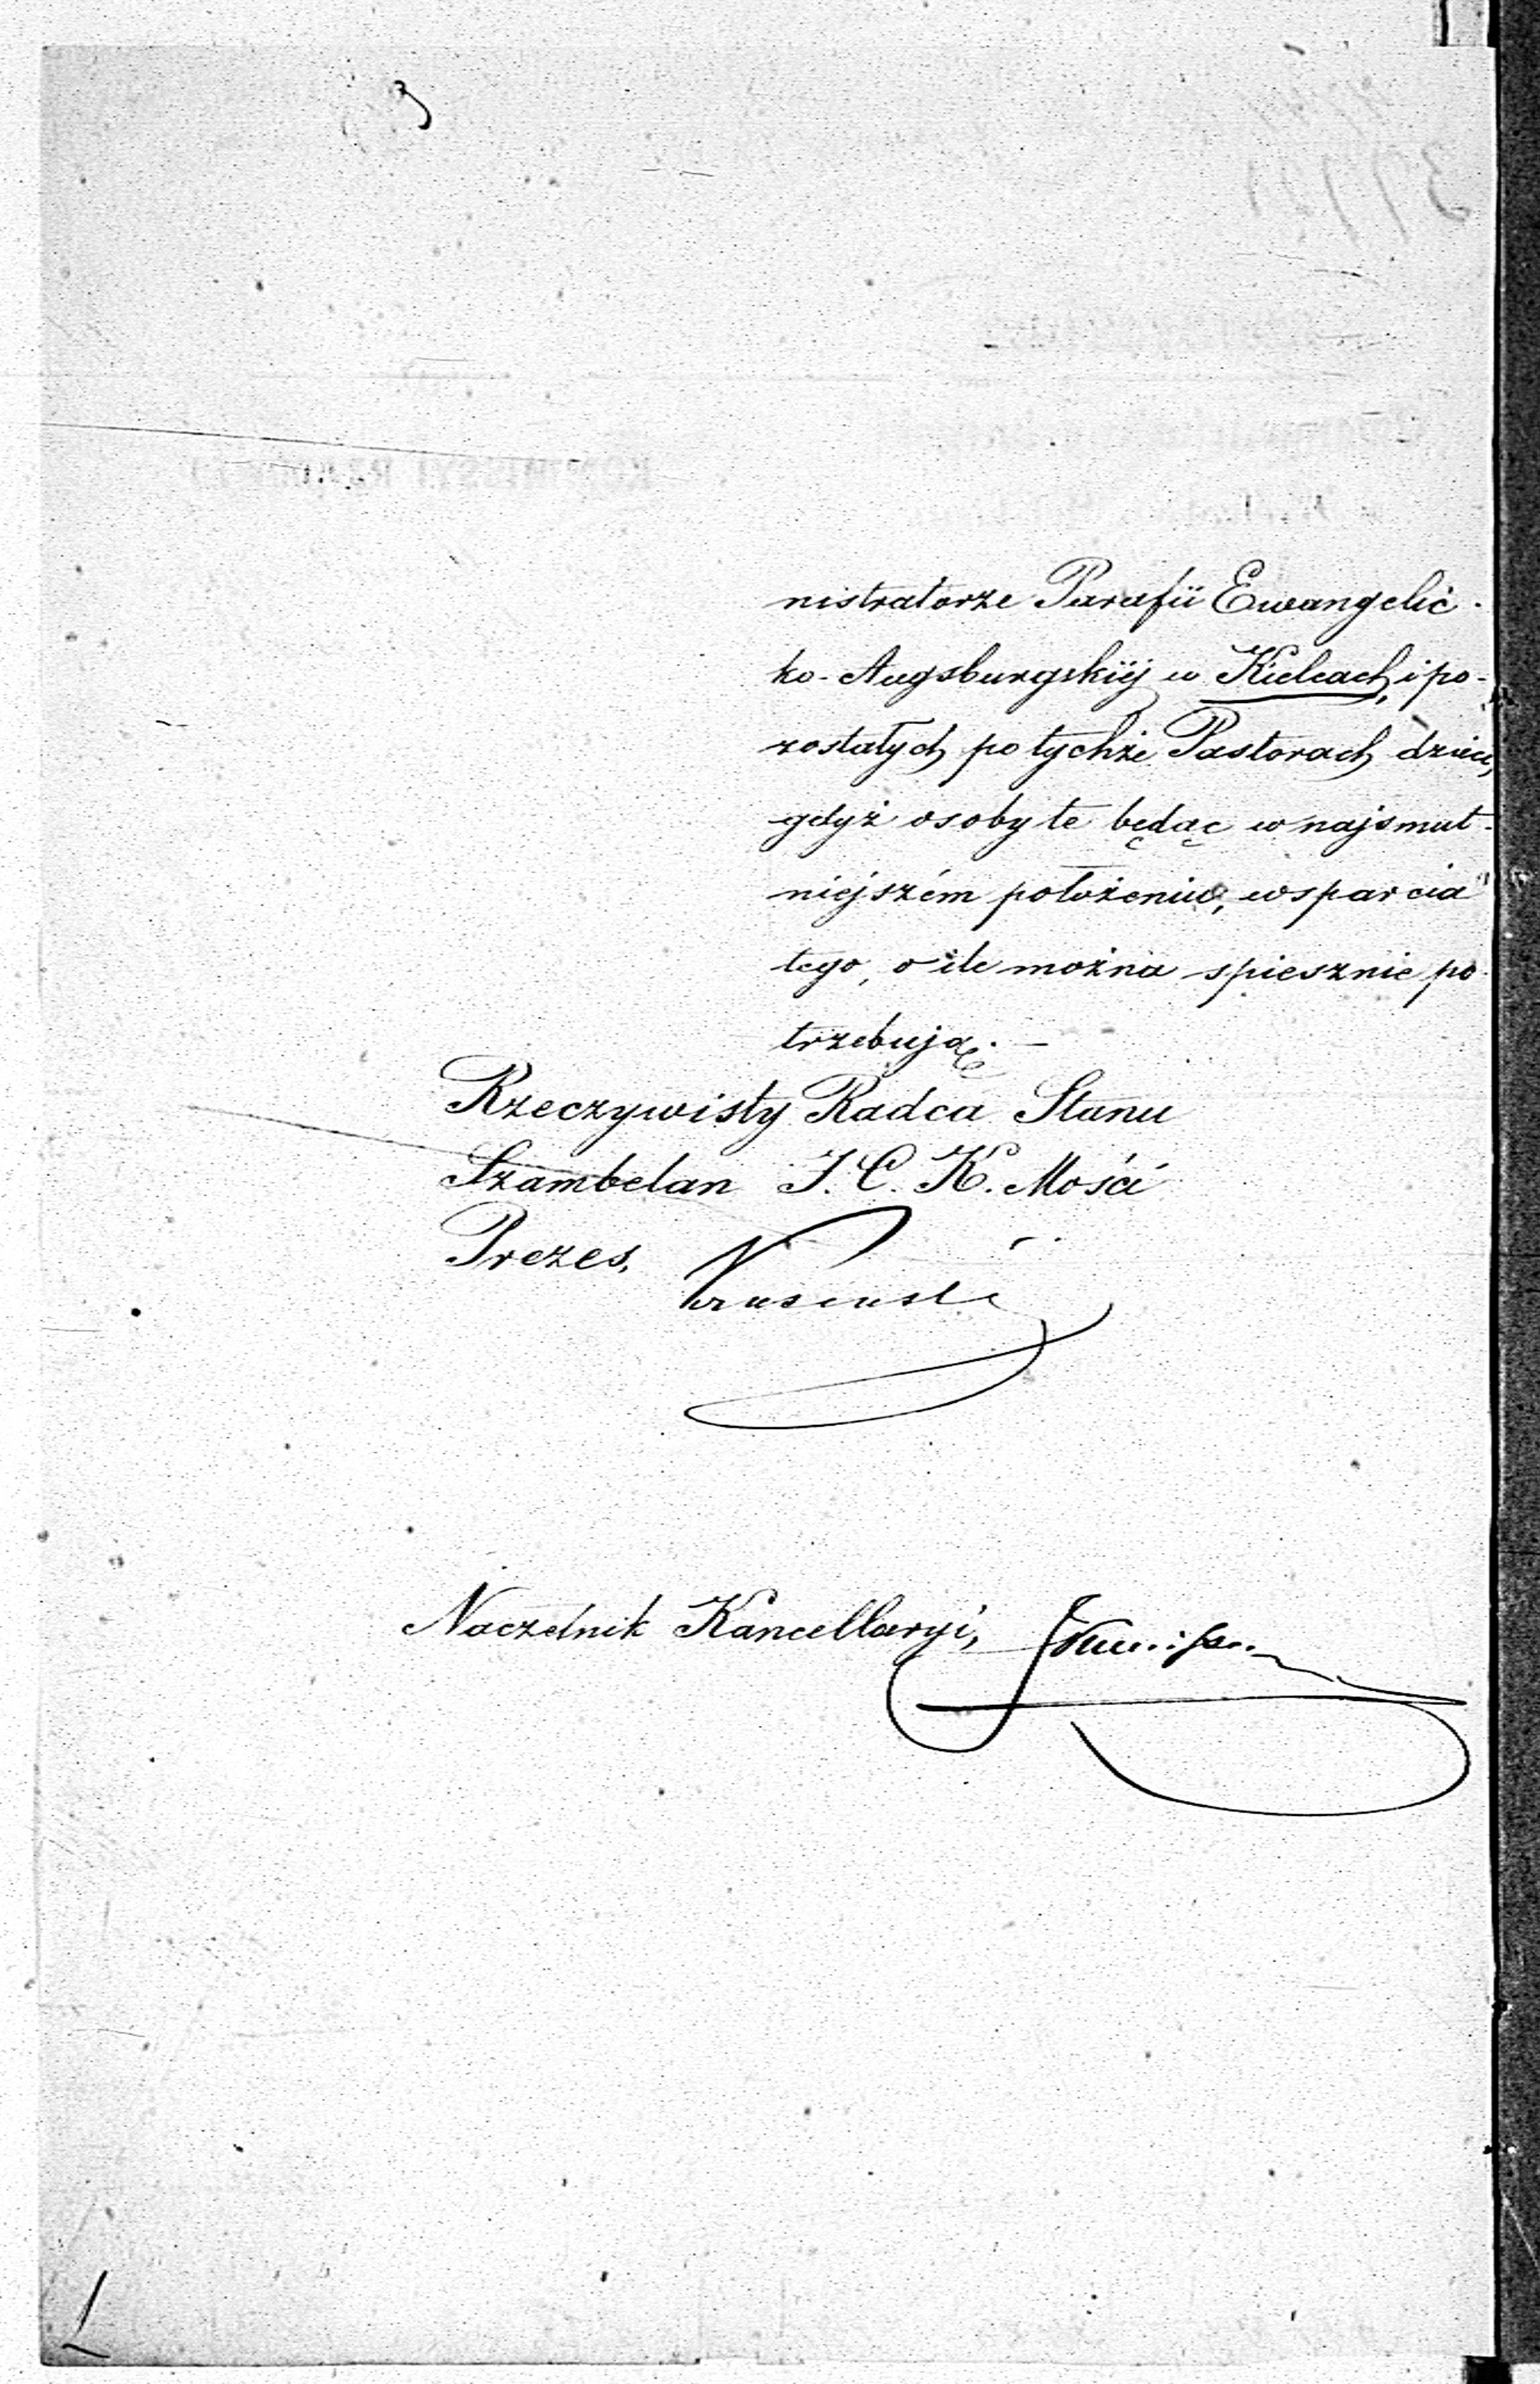 nistratorze Parafii Ewangelic-
ko-Augsburgskiéj w Kielcach, i po-
zostałych po tychże Pastorach dzieci,
gdyż osoby te będąc w najsmut-
niejszém położeniu, wsparcia
tego, o ile można spiesznie po-
trzebują. —
Rzeczywisty Radca Stanu
Szambelan J. C. K. Mości
Prezes,
Naczelnik Kancellaryi,